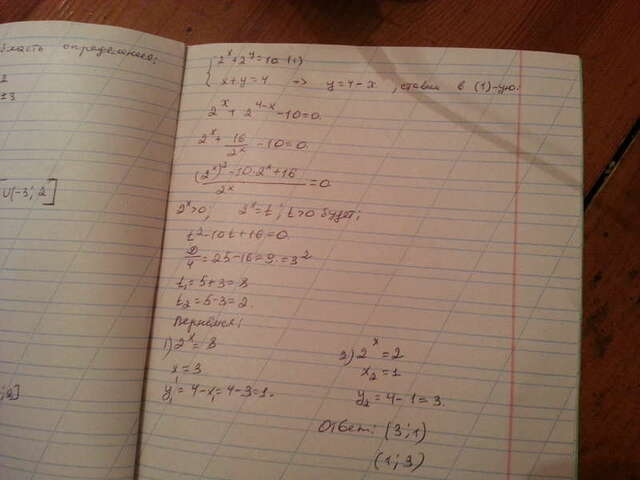 бласть определения;
2
13
U[-3; 2]
; 2]
{ 2^x + 2^y = 10 (1)
x + y = 4 => y = 4 - x , ставим в (1)-ую.
2^x + 2^(4-x) - 10 = 0.
2^x + 16/2^x - 10 = 0.
((2^x)^2 - 10·2^x + 16)/2^x = 0
2^x > 0, 2^x = t; t > 0 будет;
t^2 - 10t + 16 = 0.
D/4 = 25 - 16 = 9 = 3^2
t₁ = 5 + 3 = 8
t₂ = 5 - 3 = 2.
Вернёмся;
1) 2^x = 8
x = 3
y₁ = 4 - x₁ = 4 - 3 = 1.
2) 2^x = 2
x₂ = 1
y₂ = 4 - 1 = 3.
Ответ: (3; 1)
(1; 3)